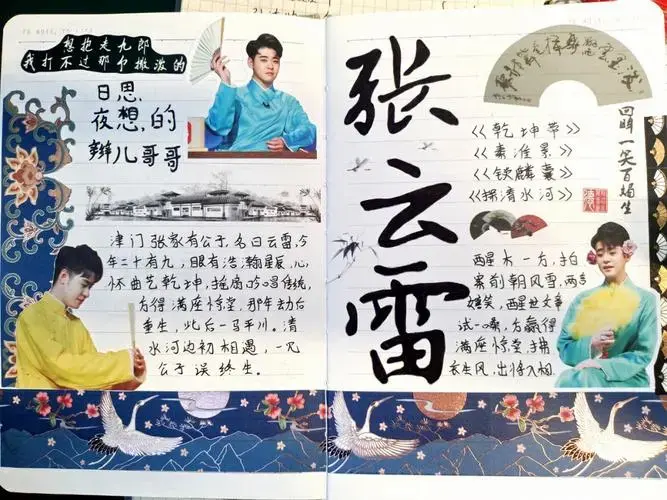 想抱走九郎
我打不过那个撒泼的
日思,
夜想,的
辫儿哥哥
津门张家有公子,名曰云雷,今
年二十有九,眼有浩瀚星辰,心
怀曲艺乾坤,摇扇吟唱传统,
方得满座惊堂,那年
重生,此后一马平川。清
水河边初相遇,一见
公子误终生。
张云雷
《乾坤带》
《秦淮景》
《锁麟囊》
《探清水河》
回眸一笑百媚生
醒木一方,拍
案前朝风雪,两言
嬉笑,醒世文章
试一嗓,方赢得
满座惊堂,拂
衣生风,出将入相.